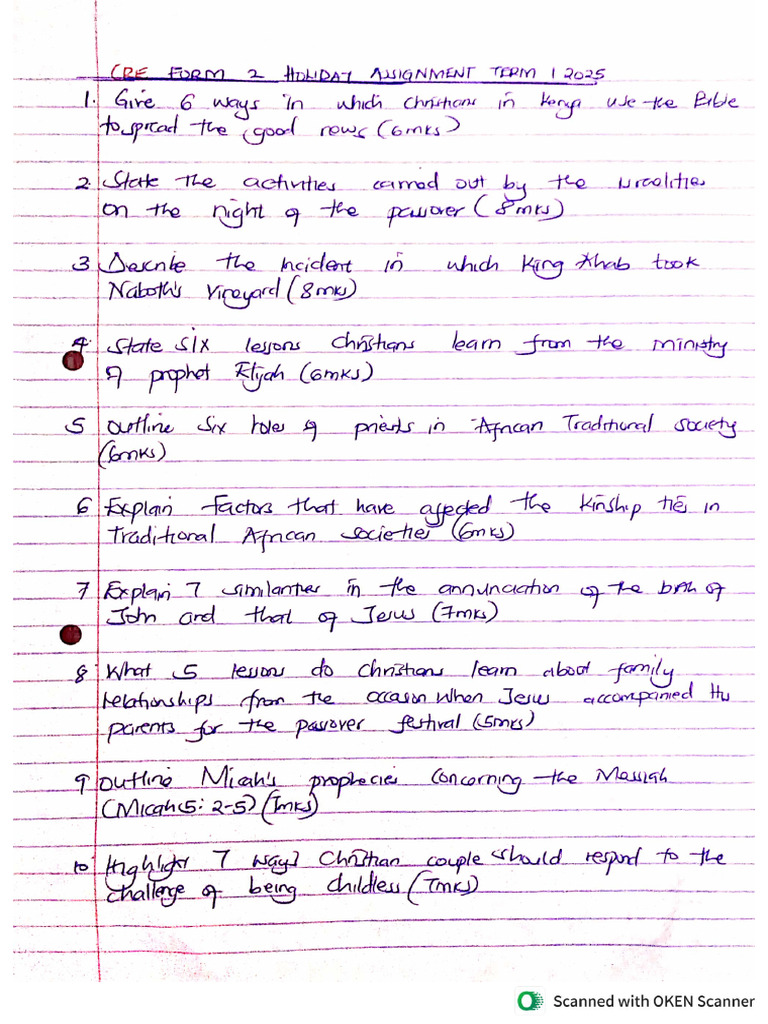 CRE FORM 2 HOLIDAY ASSIGNMENT TERM 1 2025
1. Give 6 ways in which Christians in Kenya use the Bible
to spread the good news (6mks)
2. State the activities carried out by the Israelities
on the night of the passover (8mks)
3 Describe the incident in which King Ahab took
Naboth's vineyard (8mks)
4. State six lessons Christians learn from the ministry
of prophet Elijah (6mks)
5 Outline six roles of priests in African Traditional society
(6mks)
6 Explain factors that have affected the kinship ties in
Traditional African societies (6mks)
7 Explain 7 similarities in the annunciation of the birth of
John and that of Jesus (7mks)
8 What 5 lessons do Christians learn about family
relationships from the occasion when Jesus accompanied His
parents for the passover festival (5mks)
9 Outline Micah's prophecies concerning the Messiah
(Micah 5: 2-5) (7mks)
10 Highlight 7 ways Christian couple should respond to the
challenge of being childless (7mks)
Scanned with OKEN Scanner